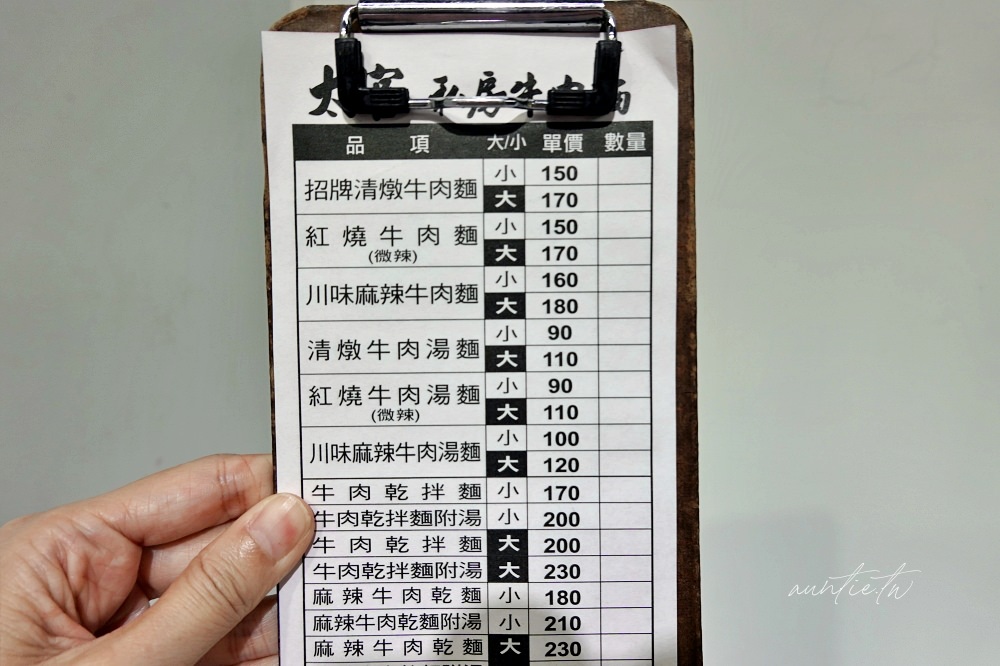 太 私房牛肉麵
品項 大/小 單價 數量
招牌清燉牛肉麵 小 150
大 170
紅燒牛肉麵 小 150
(微辣) 大 170
川味麻辣牛肉麵 小 160
大 180
清燉牛肉湯麵 小 90
大 110
紅燒牛肉湯麵 小 90
(微辣) 大 110
川味麻辣牛肉湯麵 小 100
大 120
牛肉乾拌麵 小 170
牛肉乾拌麵附湯 小 200
牛肉乾拌麵 大 200
牛肉乾拌麵附湯 大 230
麻辣牛肉乾麵 小 180
麻辣牛肉乾麵附湯 小 210
麻辣牛肉乾麵 大 230
auntie.tw